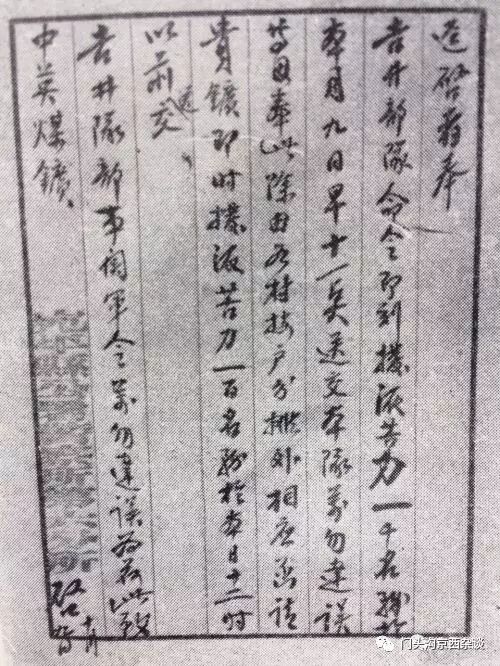 迳啓者奉
吉井部隊命令即刻撥派苦力一千名務於
本月九日早十一点送交本隊萬勿違誤
等因奉此除由各村按户分攤外相应函請
貴鑛即时撥派苦力一百名務於本日十二时
以前送交
吉井隊部事関軍令萬勿違誤為荷此致
中英煤鑛
啓
门头沟京西杂谈